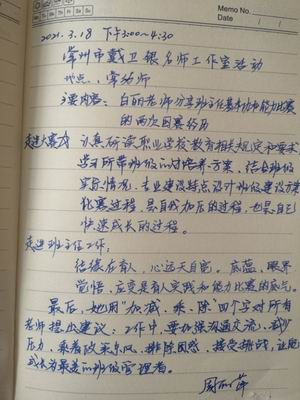 Memo No.
Date / /
2021.3.18 下午3:00~4:30
常州市戴卫银名师工作室活动
地点：常幼师
主要内容：白丽老师分享班主任基本功和能力比赛
的两次国赛经历
走进大赛 认真研读职业学校教育相关规定和要求,
学习所带班级的人才培养方案、结合班级
实际情况、专业建设特点设计班级建设方案
比赛过程，是自我加压的过程，也是自己
快速成长的过程。
走进班主任工作,
结缘在有人，心远天自宽。底蕴、眼界
觉悟、应变是有人实践和能力比赛的底气。
最后，她用“加、减、乘、除”四个字对所有
老师提出建议：工作中，要加强沟通交流、减少
压力、乘着政策东风、排除困惑、接受挑战，让自己
成长为最美的班级管理者。
周